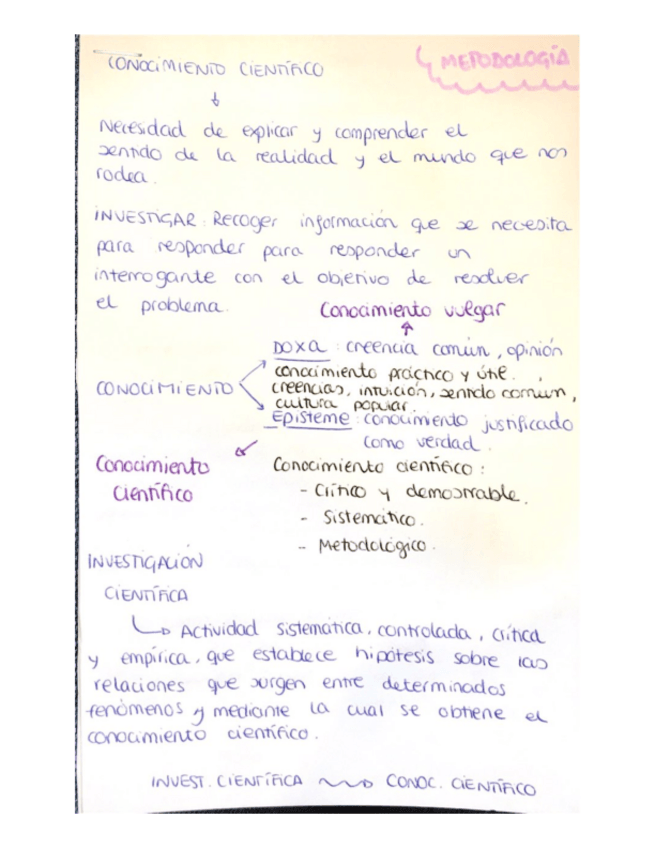 METODOLOGÍA
CONOCIMIENTO CIENTÍFICO
Necesidad de explicar y comprender el
sentido de la realidad y el mundo que nos
rodea.
INVESTIGAR: Recoger información que se necesita
para responder para responder un
interrogante con el objetivo de resolver
el problema.
Conocimiento vulgar
DOXA: creencia común, opinión
conocimiento práctico y útil.
CONOCIMIENTO
creencias, intuición, sentido común,
cultura popular.
Episteme: conocimiento justificado
como verdad.
Conocimiento
científico
Conocimiento científico:
- Crítico y demostrable.
- Sistemático.
- Metodológico.
INVESTIGACIÓN
CIENTÍFICA
Actividad sistemática, controlada, crítica
y empírica, que establece hipótesis sobre las
relaciones que surgen entre determinados
fenómenos y mediante la cual se obtiene el
conocimiento científico.
INVEST. CIENTÍFICA CONOC. CIENTÍFICO